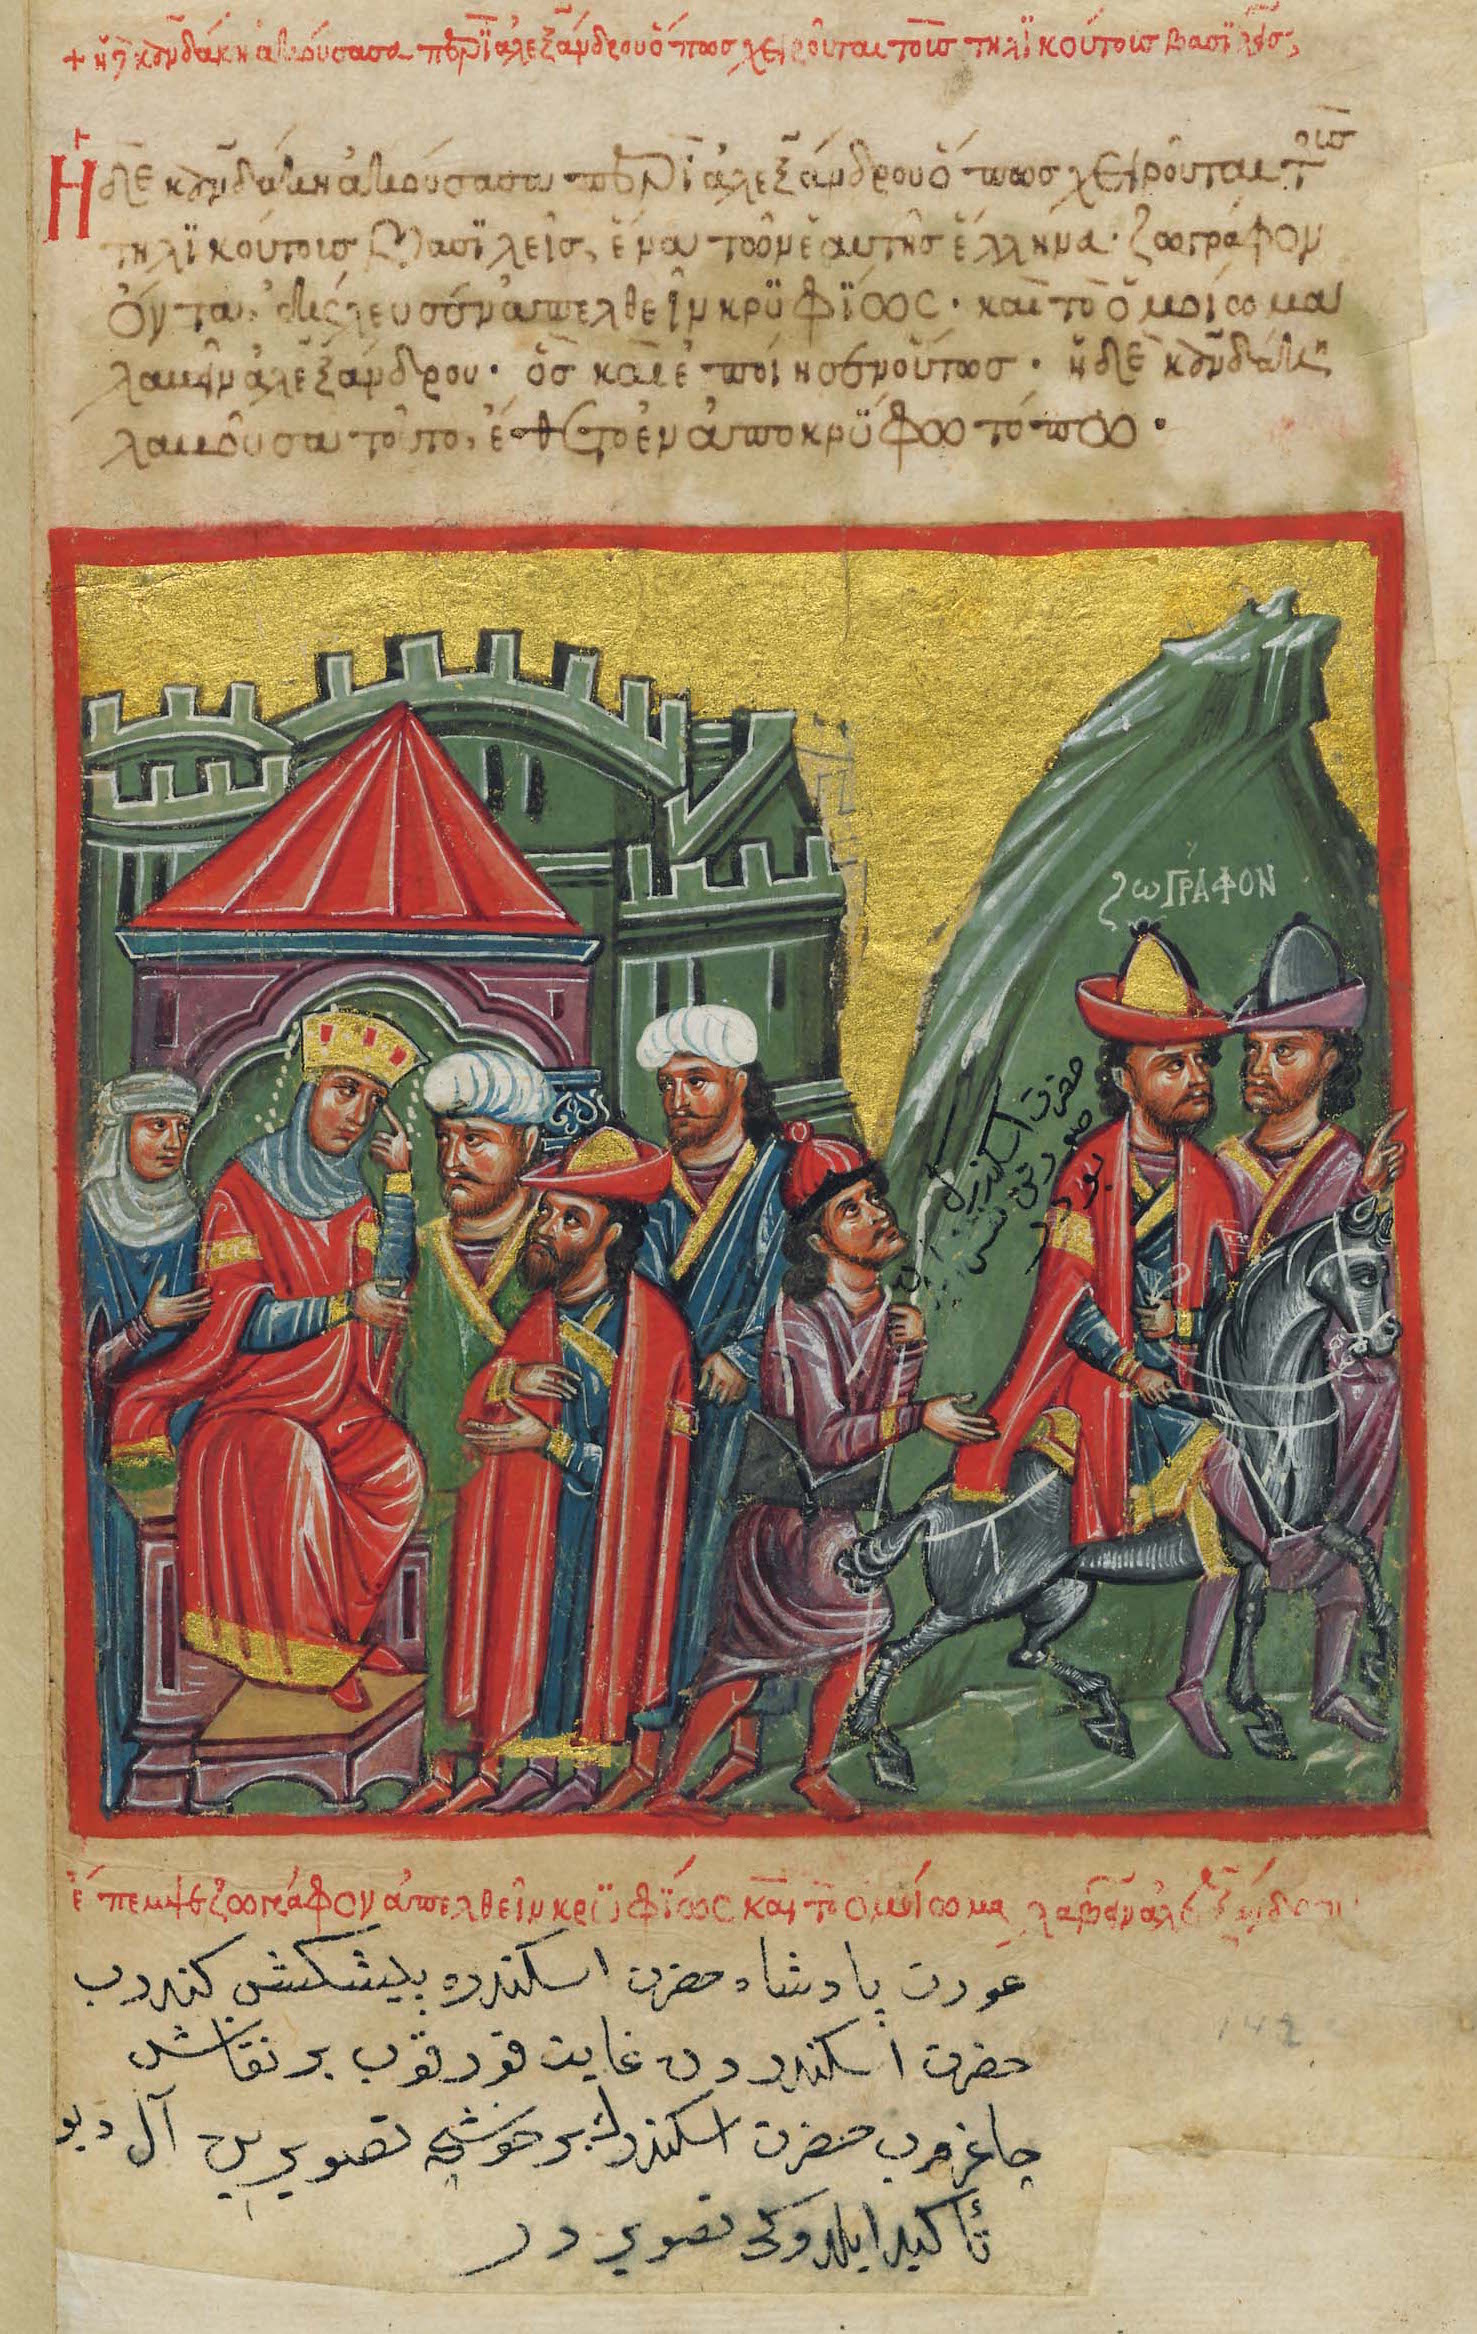 + ἡ κανδάκη ἀκούσασα περὶ ἀλεξάνδρου ὅπως χειροῦται τοῖς τηλϊκούτοις βασιλεῖς,
Ἡ δὲ κανδάκη ἀκούσασα περὶ ἀλεξάνδρου ὅπως χειροῦται τοῖς
τηλϊκούτοις βασϊλεῖς, ἕνα τῶν ἑαυτῆς ἕλληνα· ζωγράφον
ὄντα, ἐκέλευσεν ἀπελθεῖν κρϋφϊως· καὶ τὸ ὁμοίωμα
λαβεῖν ἀλεξάνδρου· ὃς καὶ ἐποίησεν οὕτως· ἡ δὲ κανδάκη
λαβοῦσα τοῦτο, ἔθετο ἐν ἀποκρϋφω τόπω·
ζωΓΡΑΦΟΝ
حضرت اسكندرك
صورتی
بودر
ἔπεμψε ζωγράφον ἀπελθεῖν κρϋφϊως καὶ τὸ ὁμοίωμα λαβεῖν ἀλεξάνδρου
عورت پادشاه حضرت اسكندره پیشكش كندروب
حضرت اسكندردن غایت قورقوب بر نقاش
چاغروب حضرت اسكندرك بر خوشجه تصویرین آل دیو
تأكید ایلدوكی تصویردر